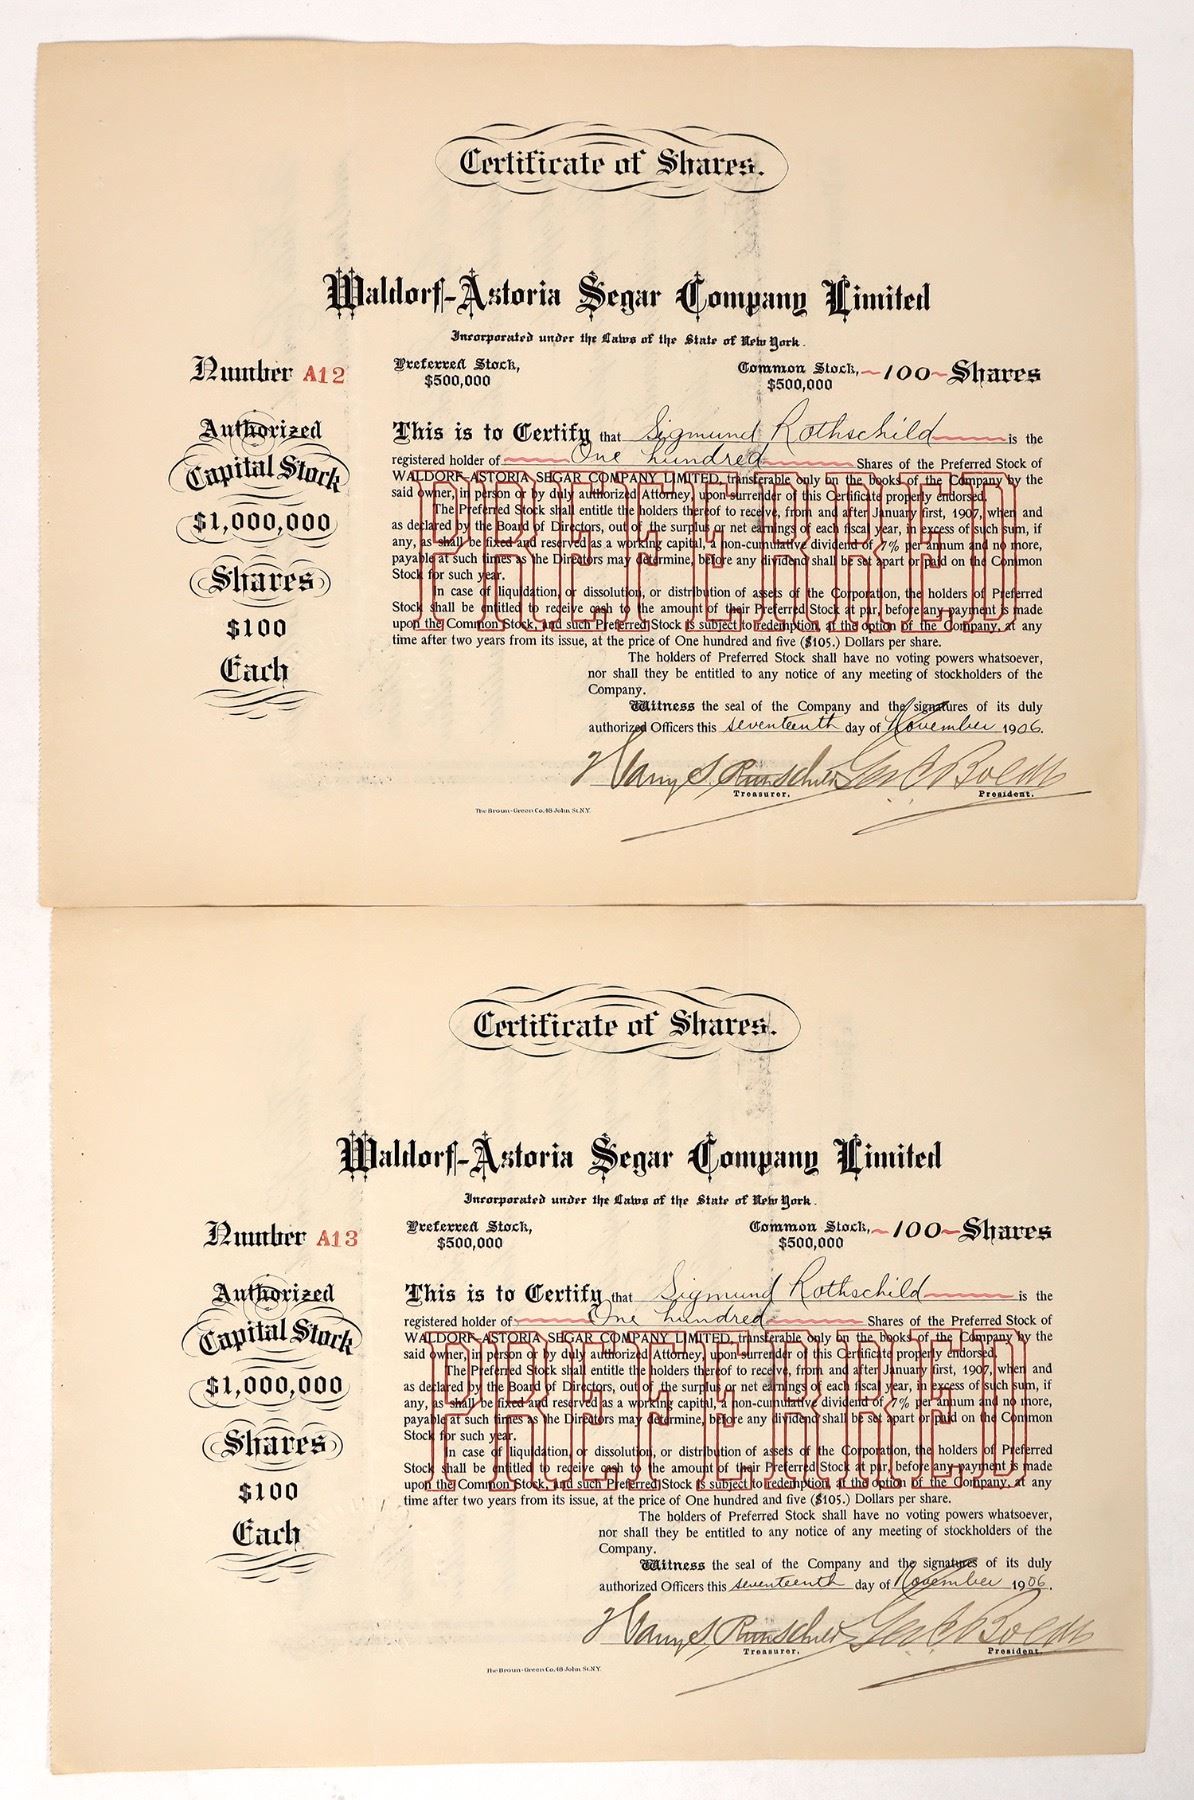 Certificate of Shares.
Waldorf-Astoria Segar Company Limited
Incorporated under the Laws of the State of New York.
Number A12
Preferred Stock,
$500,000
Common Stock,
$500,000
100 Shares
Authorized
Capital Stock
$1,000,000
Shares
$100
Each
This is to Certify that Sigmund Rothschild is the
registered holder of One hundred Shares of the Preferred Stock of
WALDORF-ASTORIA SEGAR COMPANY LIMITED, transferable only on the books of the Company by the
said owner, in person or by duly authorized Attorney, upon surrender of this Certificate properly endorsed.
The Preferred Stock shall entitle the holders thereof to receive, from and after January first, 1907, when and
as declared by the Board of Directors, out of the surplus or net earnings of each fiscal year, in excess of such sum, if
any, as shall be fixed and reserved as a working capital, a non-cumulative dividend of 7% per annum and no more,
payable at such times as the Directors may determine, before any dividend shall be set apart or paid on the Common
Stock for such year.
In case of liquidation, or dissolution, or distribution of assets of the Corporation, the holders of Preferred
Stock shall be entitled to receive cash to the amount of their Preferred Stock at par, before any payment is made
upon the Common Stock, and such Preferred Stock is subject to redemption, at the option of the Company, at any
time after two years from its issue, at the price of One hundred and five ($105.) Dollars per share.
PREFERRED
The holders of Preferred Stock shall have no voting powers whatsoever,
nor shall they be entitled to any notice of any meeting of stockholders of the
Company.
Witness the seal of the Company and the signatures of its duly
authorized Officers this seventeenth day of November 1906.
Harry S. Geo C Boldt
Treasurer. President.
The Broun-Green Co. 48 John St. N.Y.
Certificate of Shares.
Waldorf-Astoria Segar Company Limited
Incorporated under the Laws of the State of New York.
Number A13
Preferred Stock,
$500,000
Common Stock,
$500,000
100 Shares
Authorized
Capital Stock
$1,000,000
Shares
$100
Each
This is to Certify that Sigmund Rothschild is the
registered holder of One hundred Shares of the Preferred Stock of
WALDORF-ASTORIA SEGAR COMPANY LIMITED, transferable only on the books of the Company by the
said owner, in person or by duly authorized Attorney, upon surrender of this Certificate properly endorsed.
The Preferred Stock shall entitle the holders thereof to receive, from and after January first, 1907, when and
as declared by the Board of Directors, out of the surplus or net earnings of each fiscal year, in excess of such sum, if
any, as shall be fixed and reserved as a working capital, a non-cumulative dividend of 7% per annum and no more,
payable at such times as the Directors may determine, before any dividend shall be set apart or paid on the Common
Stock for such year.
In case of liquidation, or dissolution, or distribution of assets of the Corporation, the holders of Preferred
Stock shall be entitled to receive cash to the amount of their Preferred Stock at par, before any payment is made
upon the Common Stock, and such Preferred Stock is subject to redemption, at the option of the Company, at any
time after two years from its issue, at the price of One hundred and five ($105.) Dollars per share.
PREFERRED
The holders of Preferred Stock shall have no voting powers whatsoever,
nor shall they be entitled to any notice of any meeting of stockholders of the
Company.
Witness the seal of the Company and the signatures of its duly
authorized Officers this seventeenth day of November 1906.
Harry S. Geo C Boldt
Treasurer. President.
The Broun-Green Co. 48 John St. N.Y.